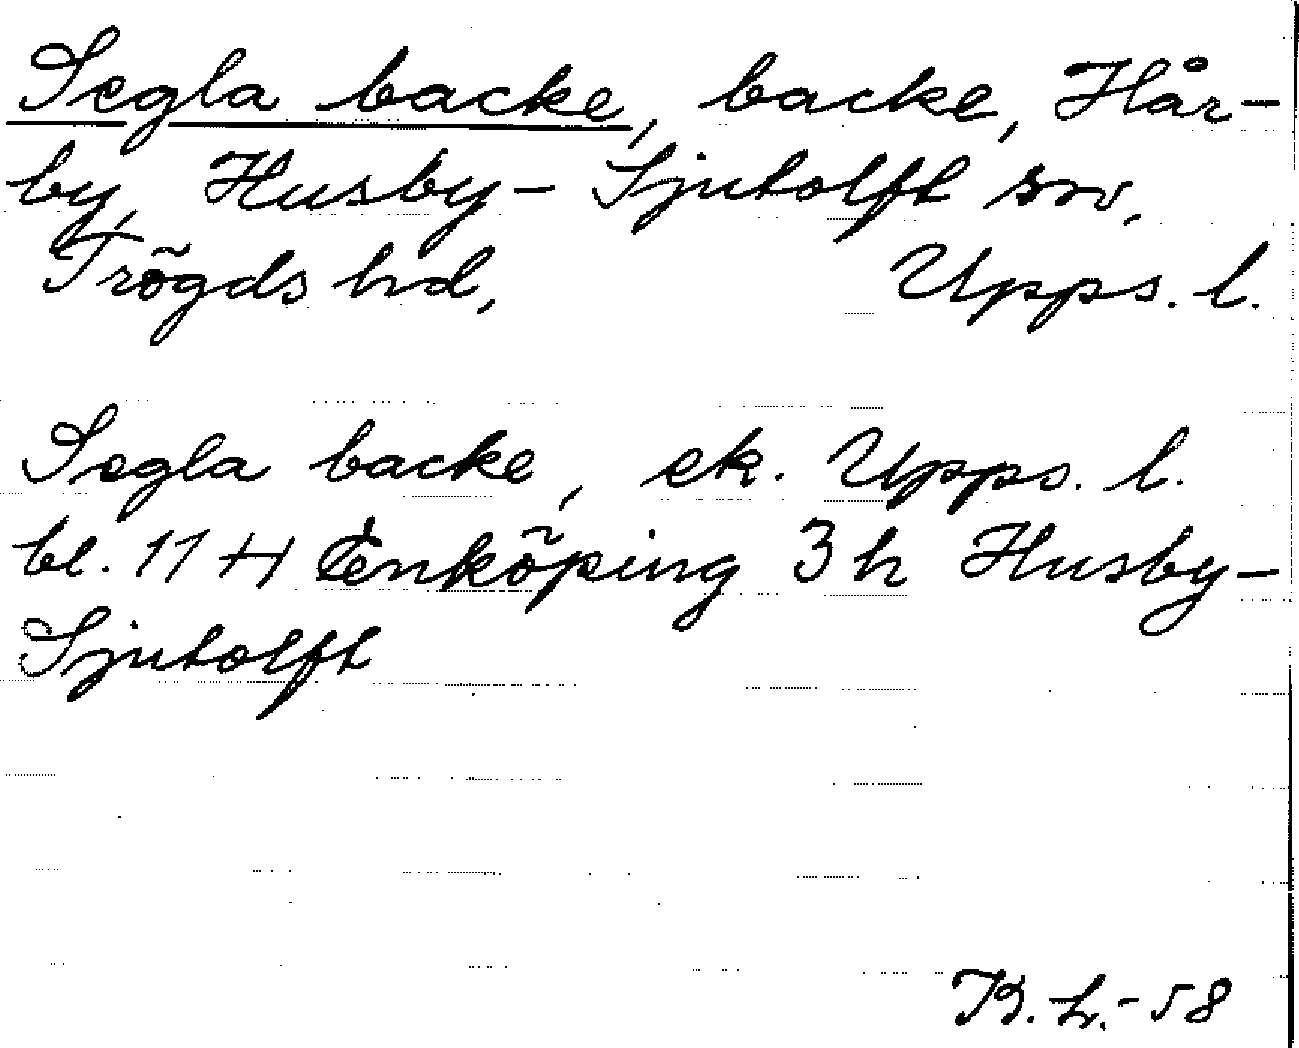 Segla backe, backe, Hår-
by, Husby-Sjutolft sn,
Trögds hd, Upps. l.
Segla backe, ek. Upps. l.
bl. 11 H Enköping 3 h Husby-
Sjutolft
B. L. -58